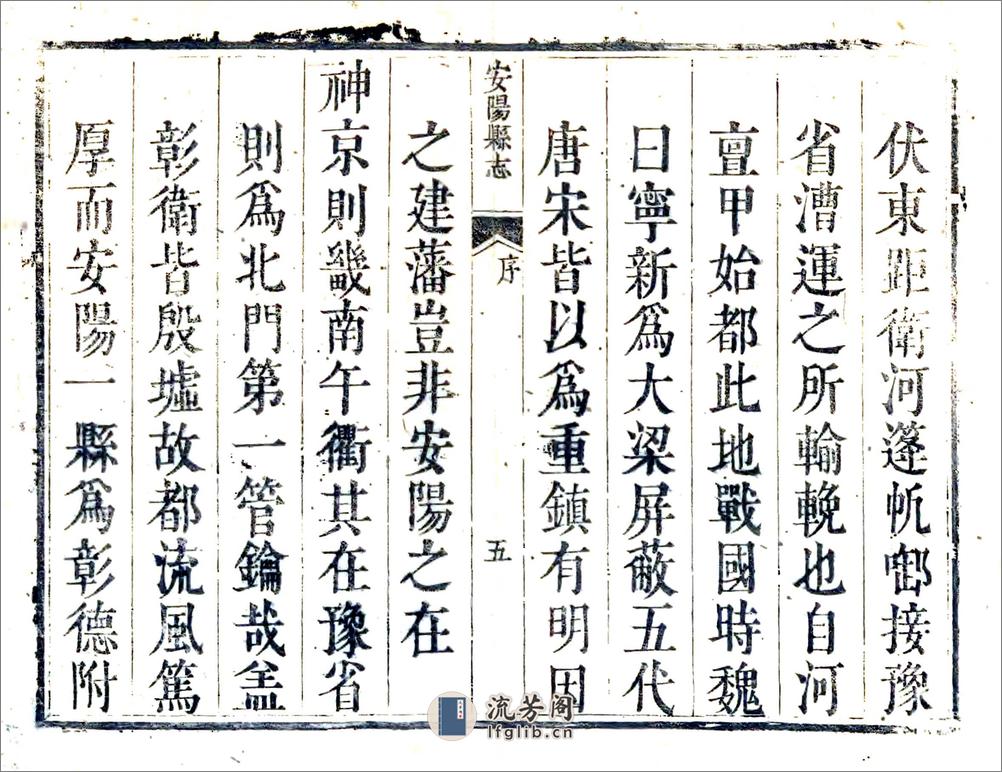 伏東距衛河蓬帆啣接豫
省漕運之所輸輓也自河
亶甲始都此地戰國時魏
曰寧新爲大梁屏蔽五代
唐宋皆以爲重鎮有明因
安陽縣志 序 五
之建藩豈非安陽之在
神京則畿南午衢其在豫省
則爲北門第一管鑰哉盖
彰衛皆殷墟故都流風篤
厚而安陽一縣爲彰德附
流芳阁
lfglib.cn